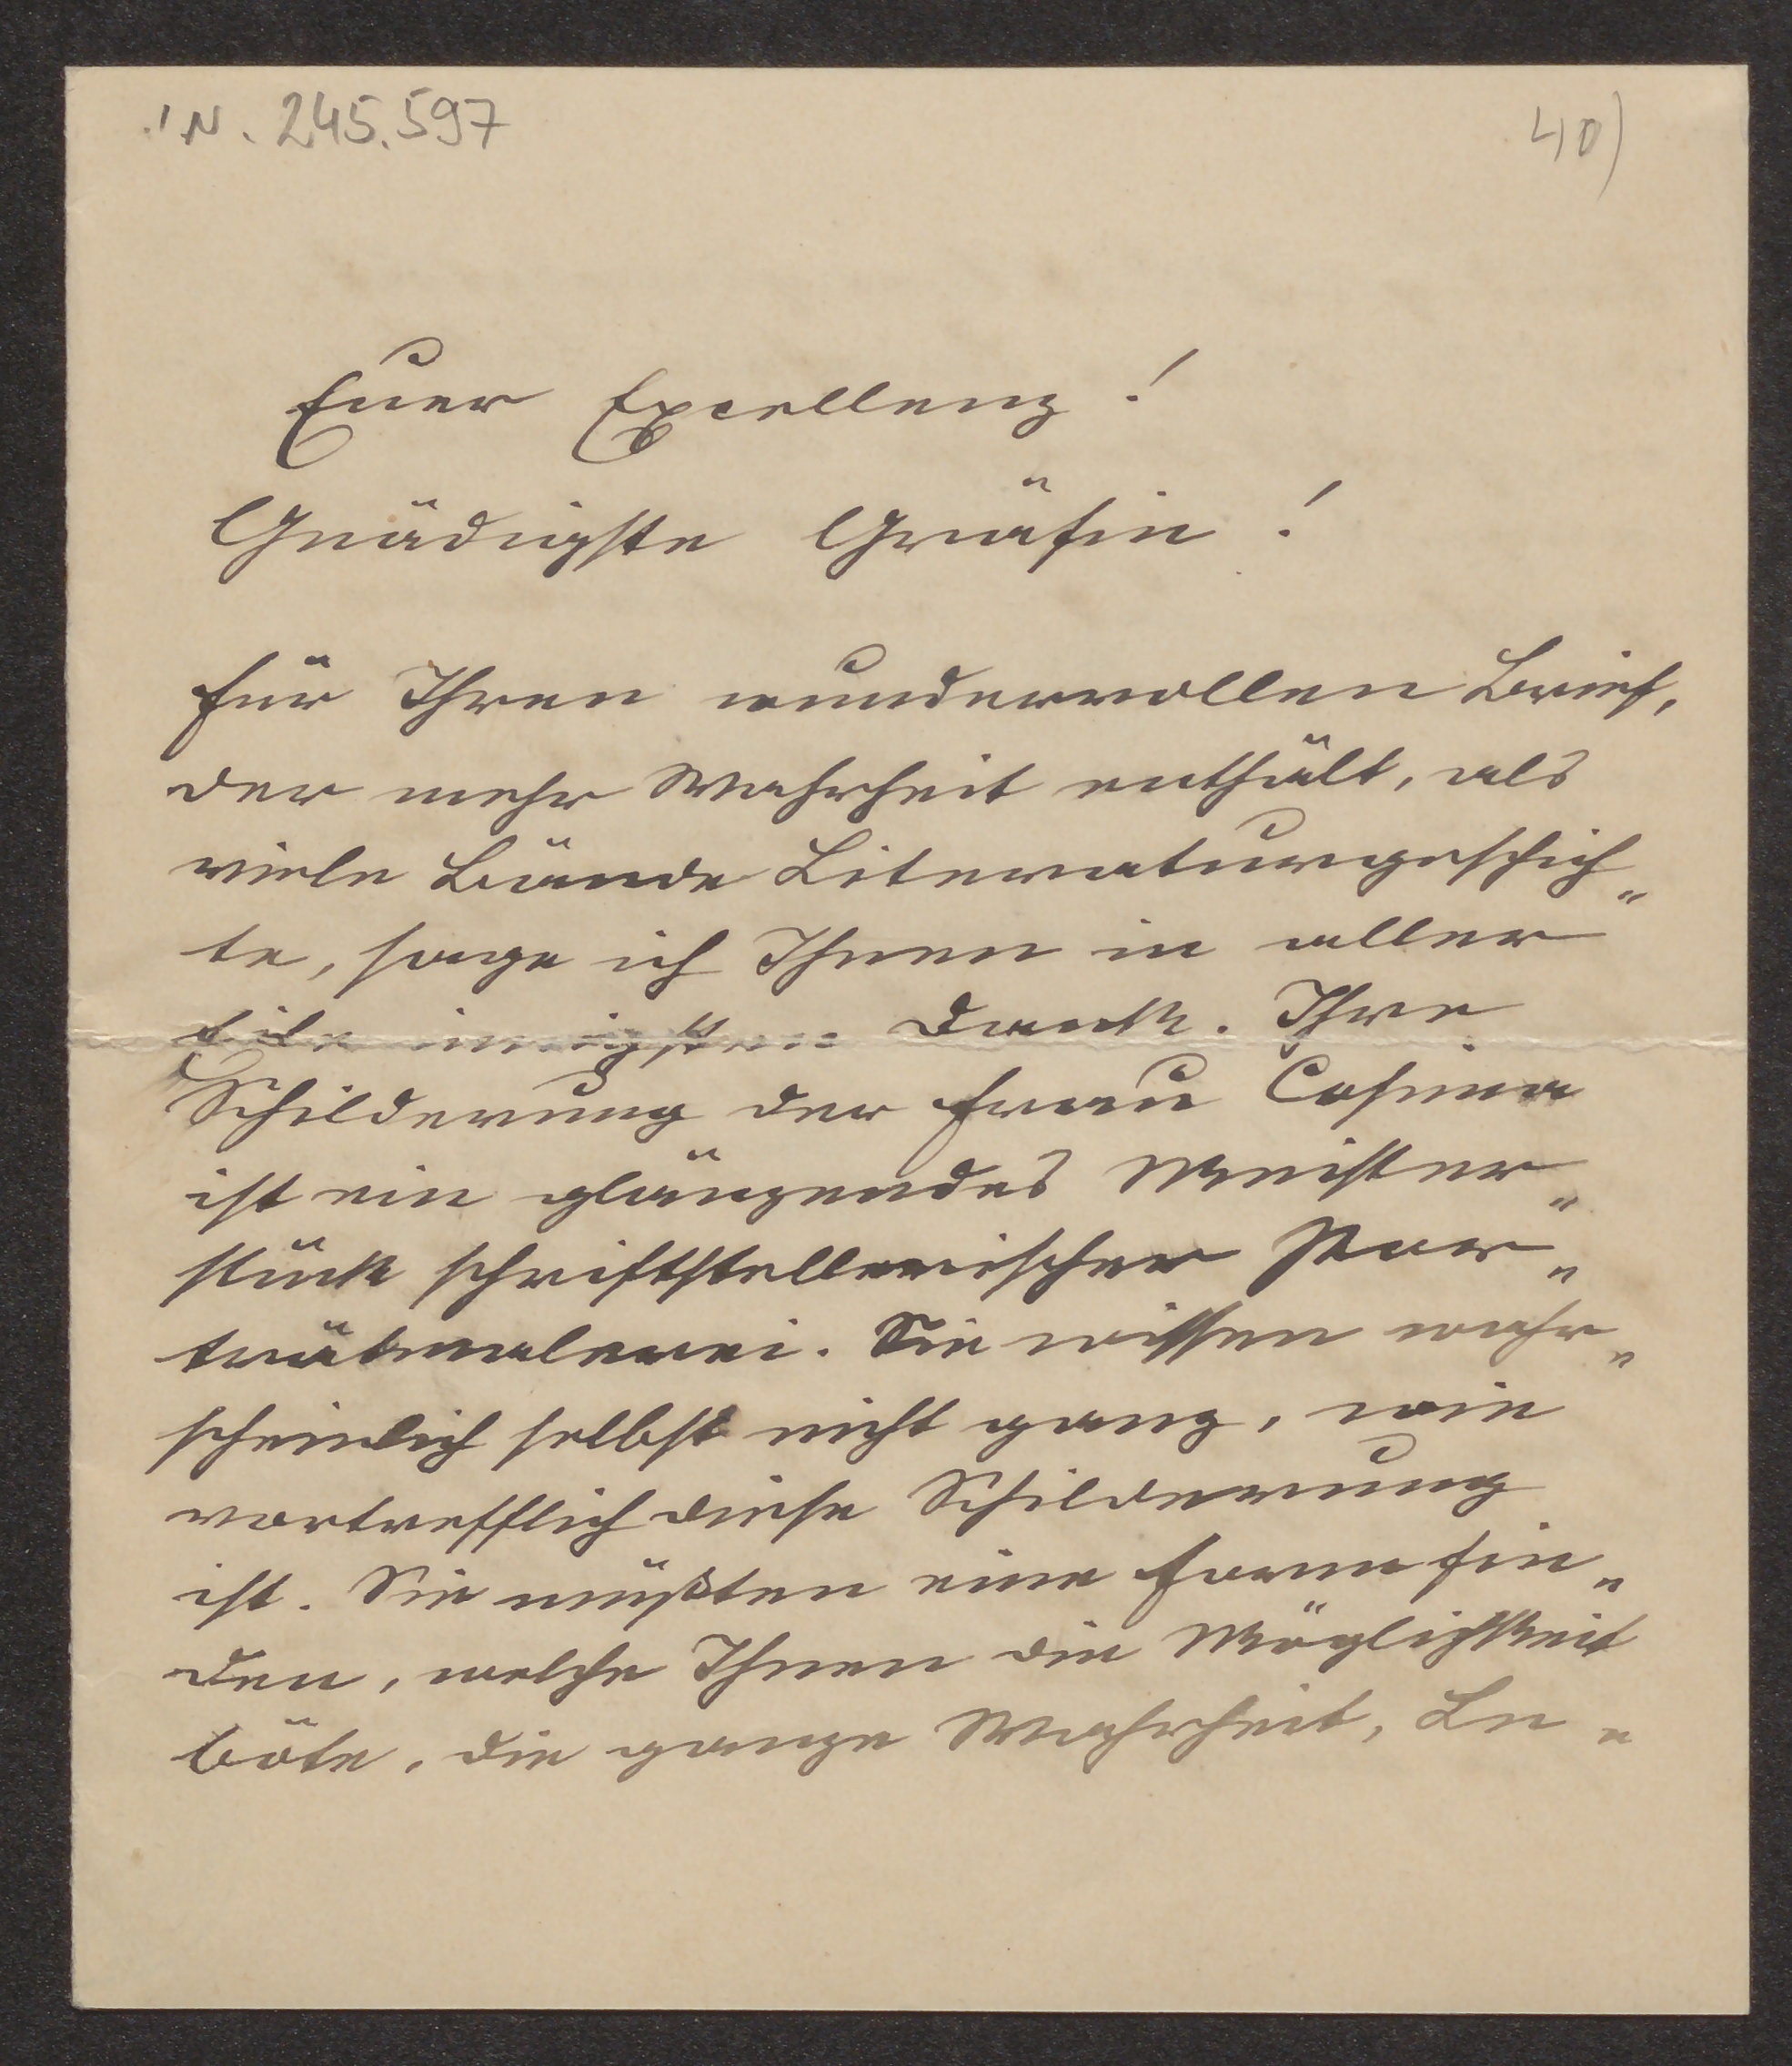 IN. 245.597
40)
Euer Excellenz!
Gnädigste Gräfin!
für Ihren wundervollen Brief,
der mehr Wahrheit enthält, als
viele Bände Literaturgeschich„
te, sage ich Ihnen in aller
Eile innigsten Dank. Ihre
Schilderung der Frau Cosima
ist ein glänzendes Meister„
stück schriftstellerischer Por„
trätmalerei. Sie wissen wahr„
scheinlich selbst nicht ganz, wie
vortrefflich diese Schilderung
ist. Sie müßten eine Form fin„
den, welche Ihnen die Möglichkeit
böte, die ganze Wahrheit, Le„